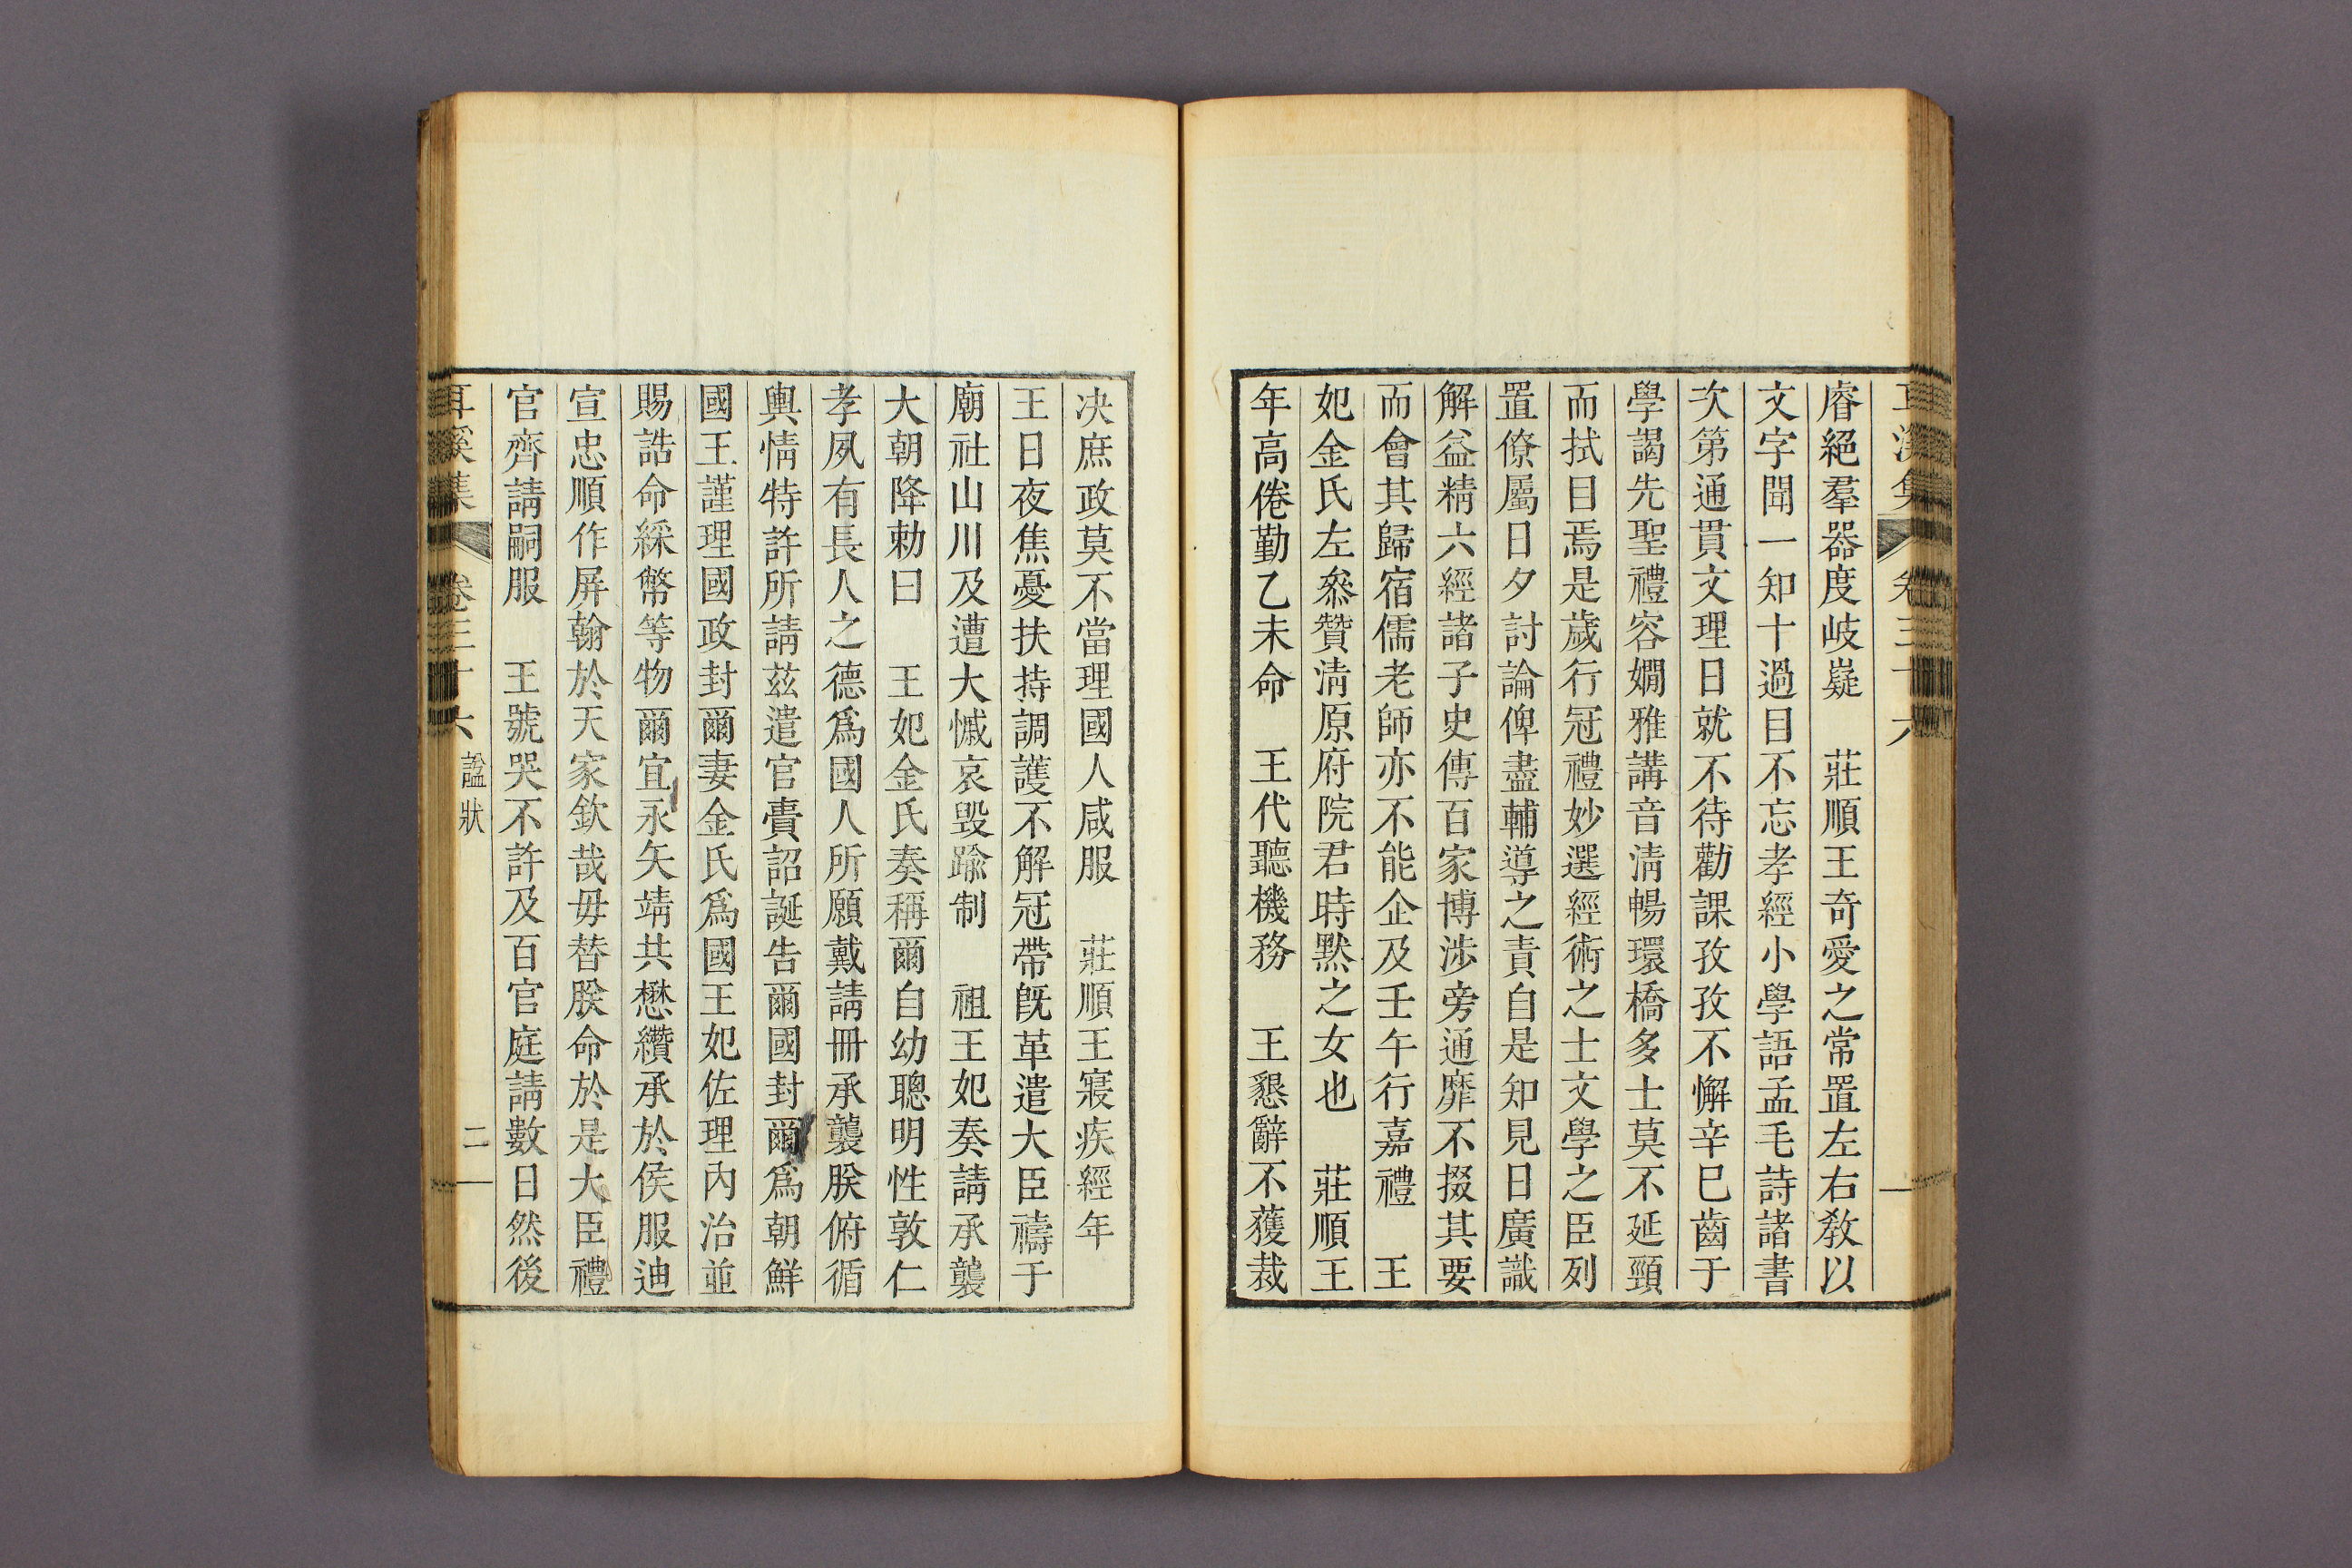 耳溪集 卷三十六
睿絕羣器度岐嶷　莊順王奇愛之常置左右敎以
文字聞一知十過目不忘孝經小學語孟毛詩諸書
次第通貫文理日就不待勸課孜孜不懈辛巳齒于
學謁先聖禮容嫺雅講音淸暢環橋多士莫不延頸
而拭目焉是歲行冠禮妙選經術之士文學之臣列
置僚屬日夕討論俾盡輔導之責自是知見日廣識
解益精六經諸子史傳百家博涉旁通靡不掇其要
而會其歸宿儒老師亦不能企及壬午行嘉禮　王
妃金氏左叅贊淸原府院君時默之女也　莊順王
年高倦勤乙未命　王代聽機務　王懇辭不獲裁
决庶政莫不當理國人咸服　莊順王寢疾經年
王日夜焦憂扶持調護不解冠帶旣革遣大臣禱于
廟社山川及遭大慽哀毁踰制　祖王妃奏請承襲
大朝降勅曰　王妃金氏奏稱爾自幼聰明性敦仁
孝夙有長人之德爲國人所願戴請冊承襲朕俯循
輿情特許所請茲遣官賫詔誕告爾國封爾爲朝鮮
國王謹理國政封爾妻金氏爲國王妃佐理內治並
賜誥命綵幣等物爾宜永矢靖共懋纘承於侯服迪
宣忠順作屏翰於天家欽哉毋替朕命於是大臣禮
官齊請嗣服　王號哭不許及百官庭請數日然後
耳溪集 卷三十六 諡狀 二